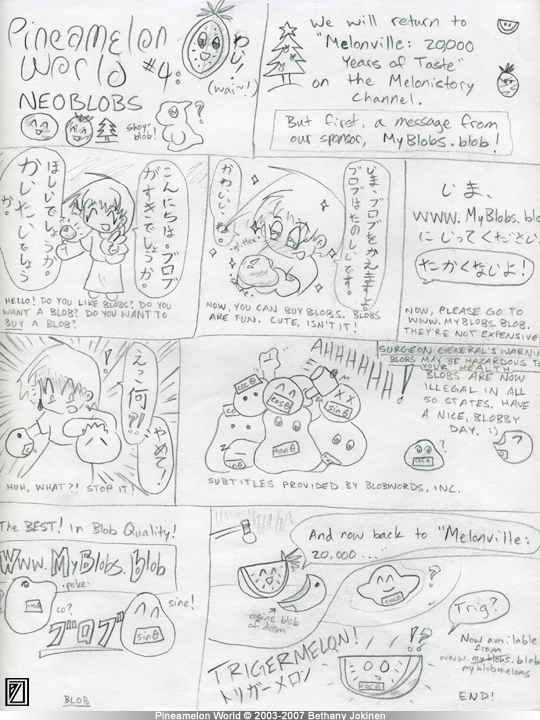 Pineamelon
World
#4:
NEOBLOBS
わい!
(wai~!)
shoyu-
blob!
We will return to
"Melonville: 20,000
Years of Taste"
on the Melonistory
Channel.
But first, a message from
our sponsor, MyBlobs.blob!
こんにちは。ブロブ
がすきでしょうか。
ほしいでしょうか。
かいたいでしょう
か。
HELLO! DO YOU LIKE BLOBS? DO YOU
WANT A BLOB? DO YOU WANT TO
BUY A BLOB?
いま、ブロブをかえますよ。
ブロブはたのしいです。
かわいい、ね。
NOW, YOU CAN BUY BLOBS. BLOBS
ARE FUN. CUTE, ISN'T IT!
いま、
WWW.MyBlobs.blo
にいってください
たかくないよ!
NOW, PLEASE GO TO
WWW.MYBLOBS.BLOB.
THEY'RE NOT EXPENSIVE!
えっ何?!
やめて!
HUH, WHAT?! STOP IT!
AHHHHHH!
cosθ
cosθ
sinθ
tanθ
SUBTITLES PROVIDED BY BLOBWORDS, INC.
SURGEON GENERAL'S WARNING
BLOBS MAY BE HAZARDOUS TO
YOUR HEALTH.
BLOBS ARE NOW
ILLEGAL IN ALL
50 STATES. HAVE
A NICE, BLOBBY
DAY. :)
?
The BEST! in Blob Quality!
WWW.MyBlobs.blob
-poke-
cosθ
co?
sine!
sinθ
ブロブ
BLOB
And now back to "Melonville:
20,000..."
cosine blob
of doom
cosθ
?
TRIGERMELON!
トリガーメロン
!?
cosθ
Trig?
Now available
from
www.myblobs.blob/
myblobmelons
END!
Pineamelon World © 2003-2007 Bethany Jokinen